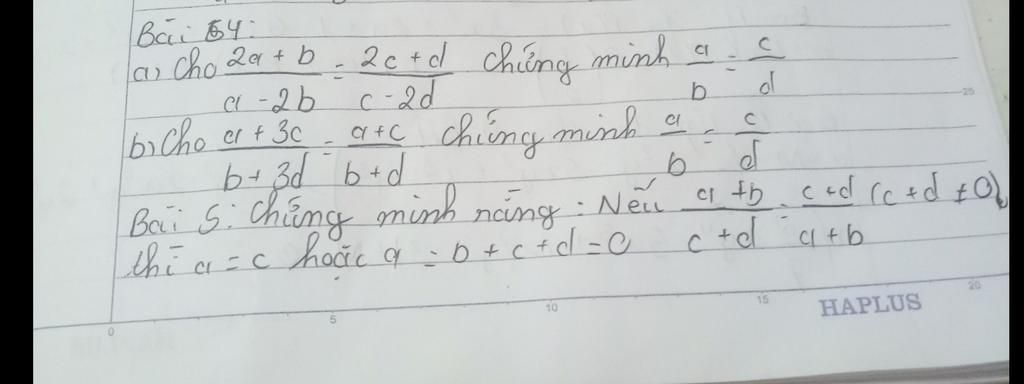 Bài 64:
a) Cho (2a + b)/(a - 2b) = (2c + d)/(c - 2d) Chứng minh a/b = c/d
b) Cho (a + 3c)/(b + 3d) = (a + c)/(b + d) Chứng minh a/b = c/d
Bài 5: Chứng minh rằng: Nếu (a + b)/(c + d) = (c + d)/(a + b) (c + d ≠ 0)
thì a = c hoặc a = b + c + d = 0
25
0 5 10 15 20
HAPLUS